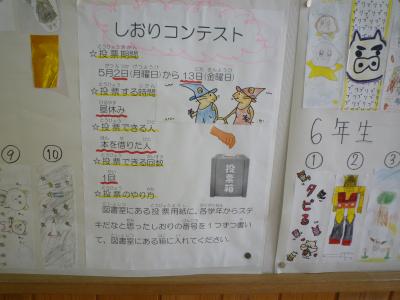 しおりコンテスト
☆投票期間
5月2日(月曜日)から13日(金曜日)
☆投票する時間
昼休み
☆投票できる人
本を借りた人
☆投票できる回数
1回
☆投票のやり方
図書室にある投票用紙に、各学年からステ
キだなと思ったしおりの番号を1つずつ書い
て、図書室にある箱に入れてください。
投票箱
⑨
⑩
6年生
①
②
③